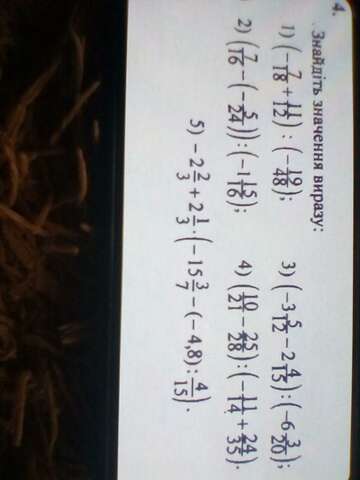 4. Знайдіть значення виразу:
1) (-7/18 + 11/12) : (-19/48); 3) (-3 5/12 - 2 4/15) : (-6 3/20);
2) (7/16 - (-5/24)) : (-1 15/16); 4) (10/21 - 25/28) : (-11/14 + 24/35).
5) -2 2/3 + 2 1/3 · (-15 3/7 - (-4,8) : 4/15).